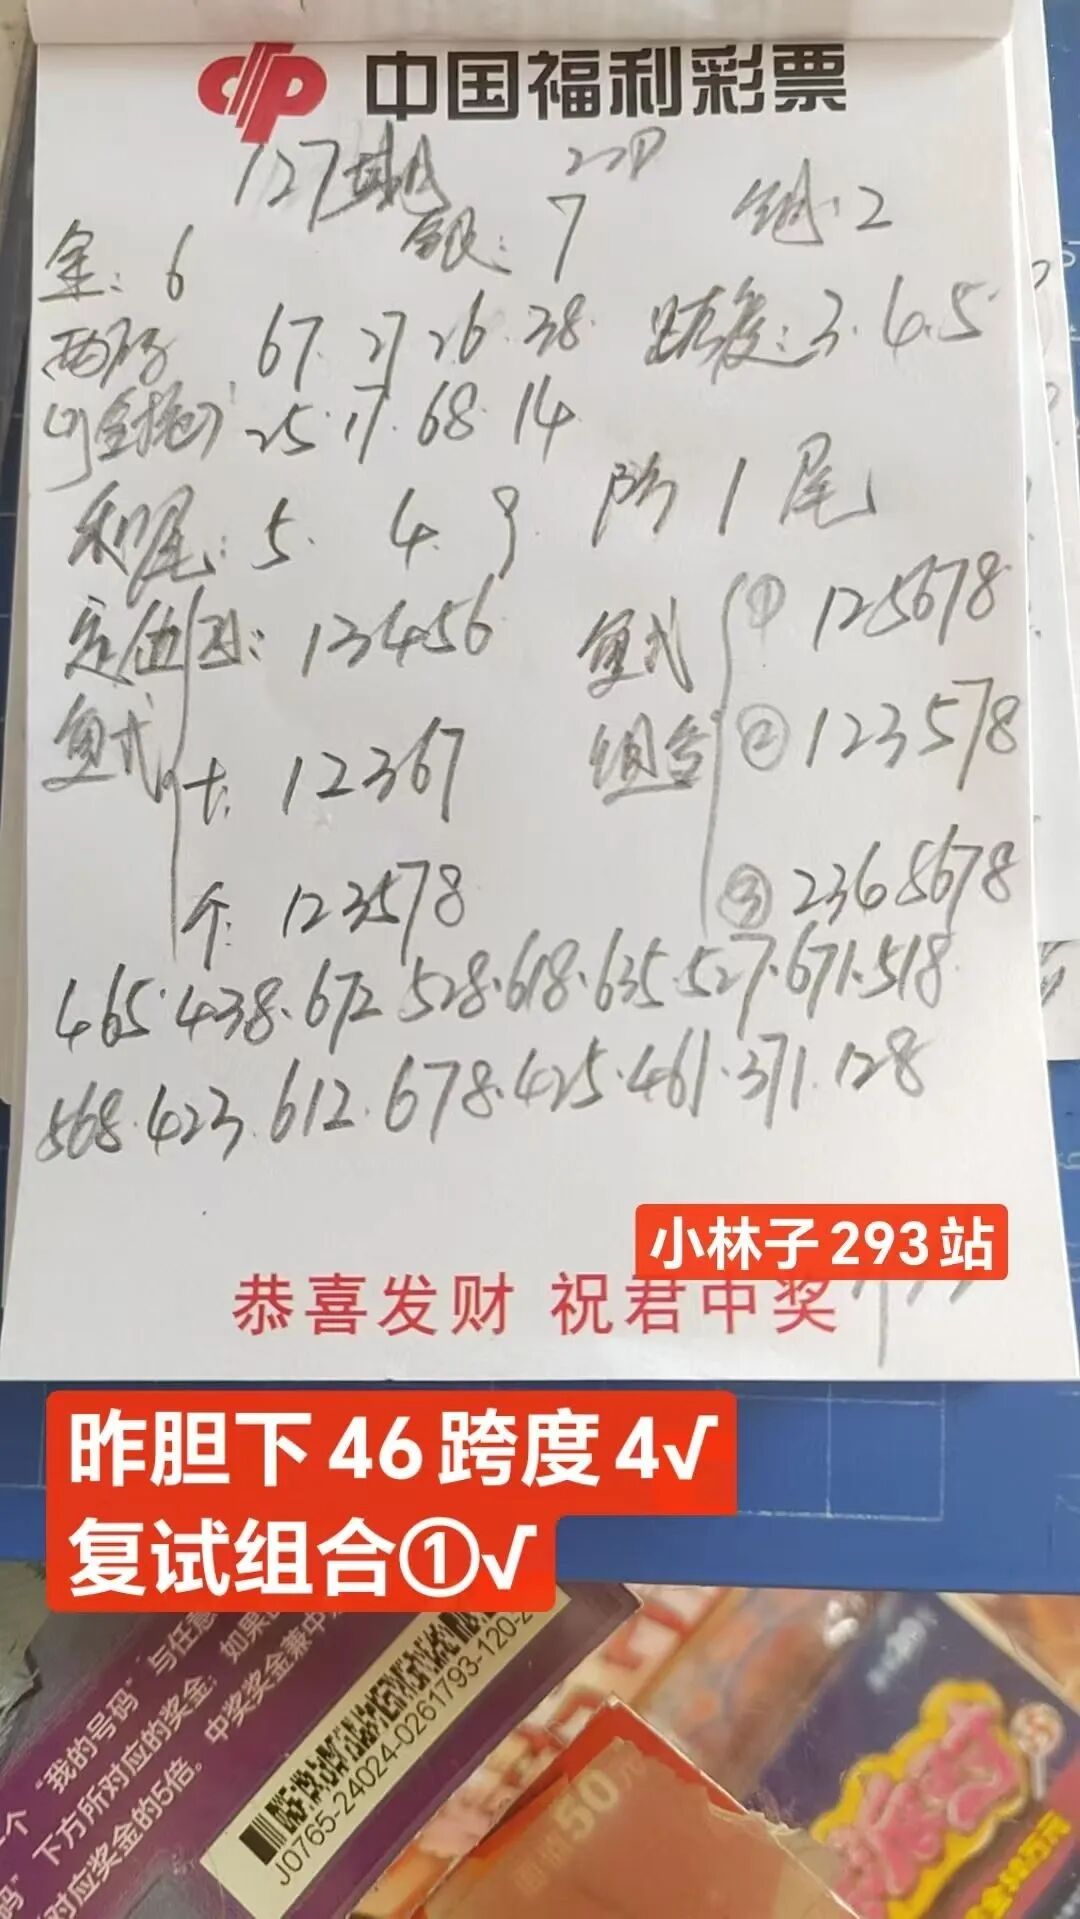 中国福利彩票
127期
金：6 银：7 铜：2
两码 67. 27 26. 38. 跨度：3. 4. 5
25. 17. 68. 14
和尾：5. 4. 9. 防1尾
定位 百：13456 复式 ① 125678
复式 十：12367 组合 ② 123578
个：123578 ③ 2368678
465. 438. 672 528. 618. 635. 527. 671. 518
568. 423. 612. 678. 425. 461. 371. 128
小林子293站
恭喜发财 祝君中奖
昨胆下46跨度4√
复试组合①√
"我的号码"与任意
下方所对应的奖金；如果
对应奖金的5倍。中奖奖金兼中
J0765-24024-0261793-120-2
50元